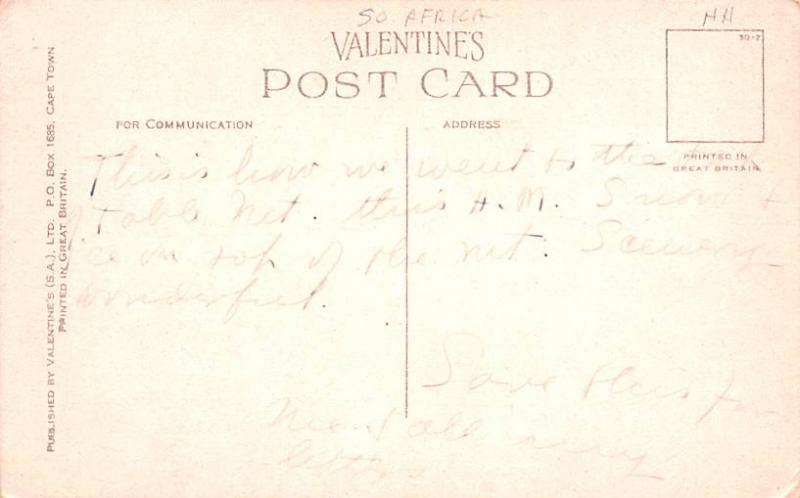 SO. AFRICA
HH
VALENTINE'S
POST CARD
30-2
FOR COMMUNICATION
ADDRESS
PRINTED IN
GREAT BRITAIN
This is how we went to the top
of Table Mt. this A.M. Snow &
ice on top of the mt. Scenery
wonderful.
Save this for
me & all my
letters
PUBLISHED BY VALENTINE'S (S.A.), LTD. P.O. BOX 1685, CAPE TOWN.
PRINTED IN GREAT BRITAIN.